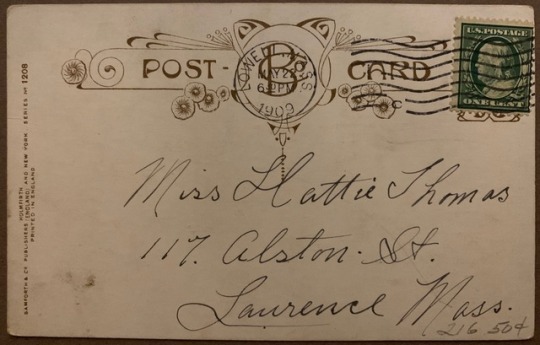 POST-CARD
LOWELL, MASS
MAY 22
6 PM
1909
U.S. POSTAGE
ONE CENT
Miss Hattie Thomas
117. Alston. St.
Lawrence Mass.
216 50¢
BAMFORTH & Co PUBLISHERS (ENGLAND) AND NEW YORK. SERIES No 1208
HOLMFIRTH
PRINTED IN ENGLAND